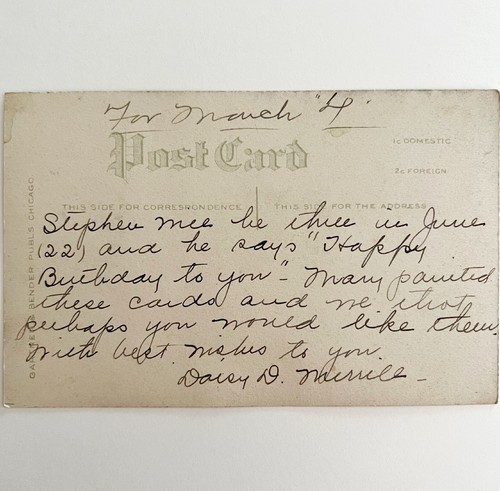 For March "4".
Post Card
1c DOMESTIC
2c FOREIGN
THIS SIDE FOR CORRESPONDENCE THIS SIDE FOR THE ADDRESS
Stephen be three in June
(22) and he says "Happy
Birthday to you" - Mary painted
these cards and we
perhaps you would like them.
With best wishes to you.
Daisy D. Merrill -
PUBLS. CHICAGO